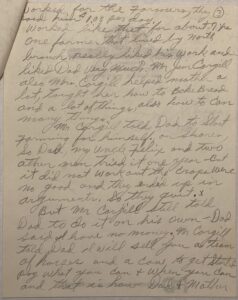 worked for the Farmers, they
paid him 1.00 per day.
Worked like that for about 1 yr.
One farmer that lived by North
branch really liked his work and
liked Dad very much. Mr Jim Cargill
also Mrs. Cargill helped mother a
lot taught her how to Bake Bread
and a lot of things, also how to can
many things.
Mr. Cargill told Dad to start
farming for himself, on shares
so Dad, my Uncle Felix and two
other men tried it one year - But
it did not work out the crops were
no good and they ended up in
arguments. So they quit.
But Mr Cargill still told
Dad to do it on his own - Dad
said he have no money. Mr Cargill
told Dad I will sell you a team
of horses and a cow, to get started
Pay what you can & when you can
and that is how Dad & Mother